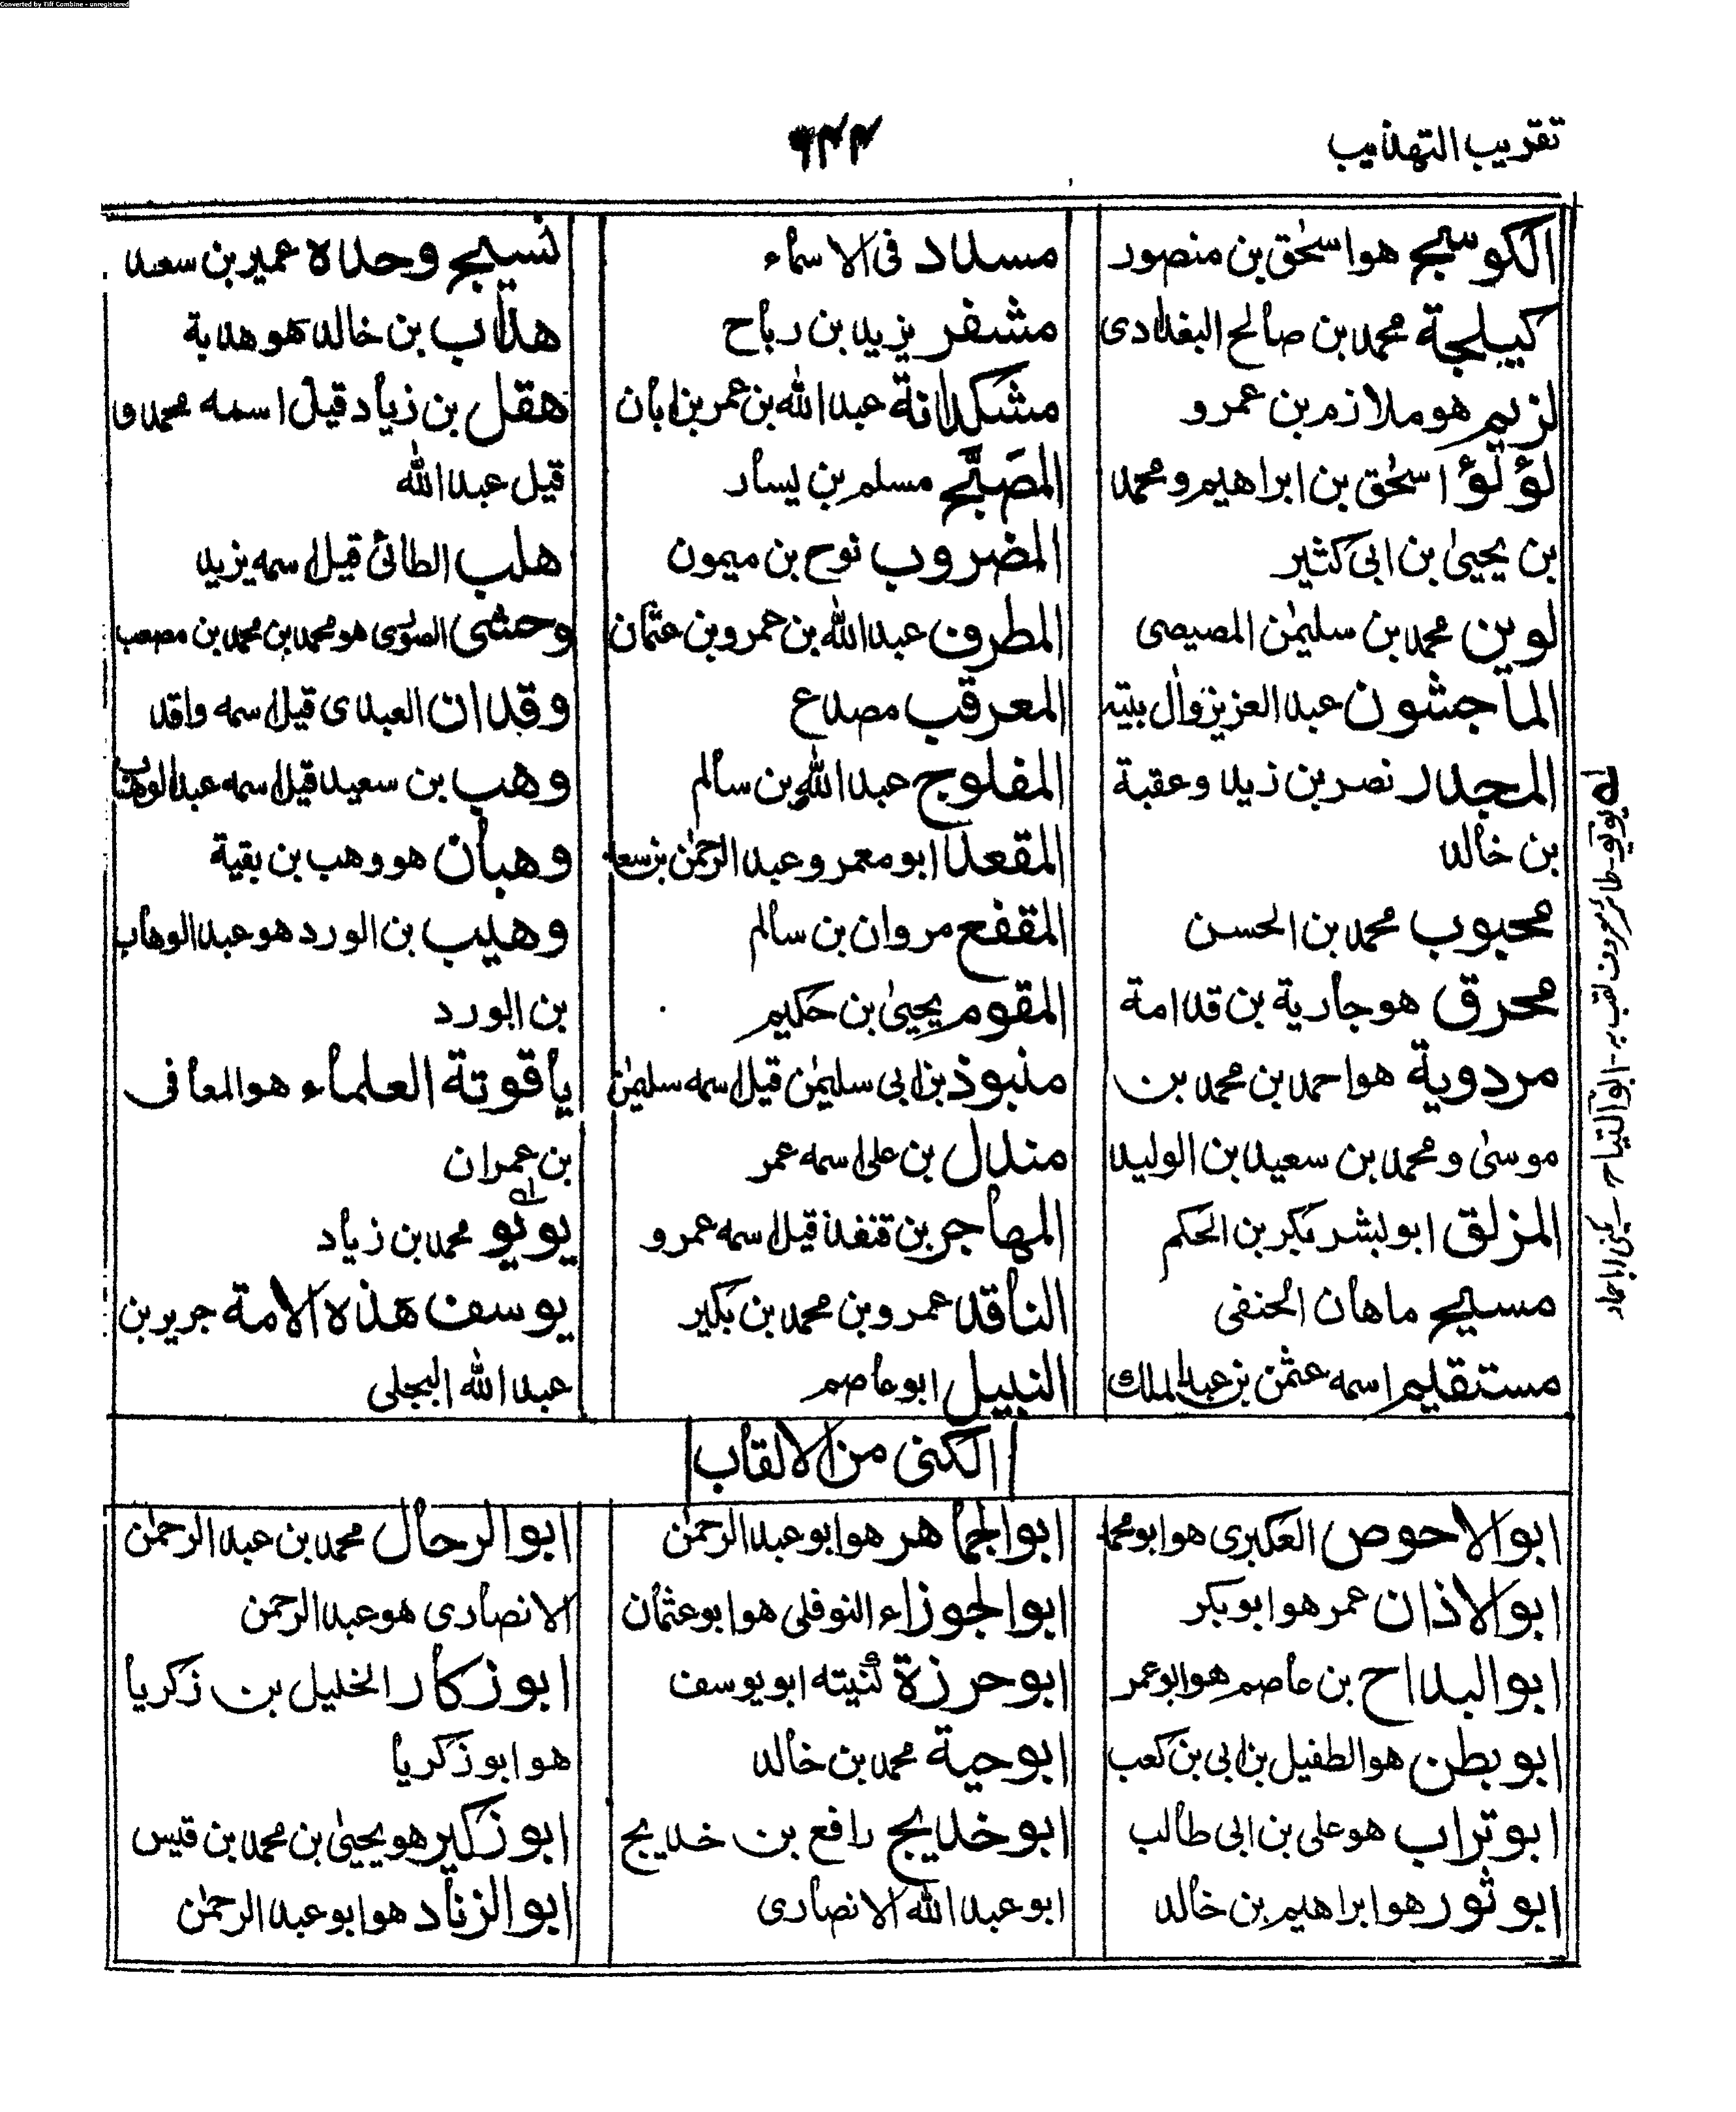 Converted by Tiff Combine - unregistered
تقريب التهذيب
٦٣٣
الكوسج هو اسحٰق بن منصور
كيلجة محمد بن صالح البغدادى
لزيم هو ملازم بن عمرو
لؤلؤ اسحٰق بن ابراهيم و محمد
بن يحيىٰ بن ابى كثير
لوين محمد بن سليمٰن المصيصى
الماجشون عبد العزيز وال بيته
المجدر نصر بن زيد وعقبة
بن خالد
محبوب محمد بن الحسن
محرق هو جارية بن قدامة
مردوية هو احمد بن محمد بن
موسىٰ و محمد بن سعيد بن الوليد
المزلق ابو بشر بكر بن الحكم
مسيح ماهان الحنفى
مستقليم اسمه عثمٰن بن عبد الملك
مسدد فى الاسماء
مشفر يزيد بن رباح
مشكدانة عبد الله بن عمر بن ابان
المصَبّح مسلم بن يسار
المضروب نوح بن ميمون
المطرف عبد الله بن عمرو بن عثمان
المعرقب مصدع
المفلوج عبد الله بن سالم
المقعد ابو معمر و عبد الرحمٰن بن سعد
المقفع مروان بن سالم
المقوم يحيىٰ بن حكيم
منبوذ بن ابى سليمٰن قيل اسمه سليمٰن
مندل بن على اسمه عمر
المهاجر بن قنفذ قيل اسمه عمرو
الناقد عمرو بن محمد بن بكير
النبيل ابو عاصم
نسيج وحده عمير بن سعد
هداب بن خالد هو هدبة
هقل بن زياد قيل اسمه محمد و
قيل عبد الله
هلب الطائى قيل اسمه يزيد
وحشى الصورى هو محمد بن محمد بن مصعب
وقدان العبدى قيل اسمه واقد
وهب بن سعيد قيل اسمه عبد الوهاب
وهبان هو وهب بن بقية
وهيب بن الورد هو عبد الوهاب
بن الورد
ياقوتة العلماء هو المعافى
بن عمران
يويو محمد بن زياد
يوسف هذه الامة جرير بن
عبد الله البجلى
يويو - طائر معروف لقب به - ابو التياح - يكنى ابا حماد
الكنى من الالقاب
ابو الاحوص العكبرى هو ابو محمد
ابو الاذان عمر هو ابو بكر
ابو البداح بن عاصم هو ابو عمر
ابو بطن هو الطفيل بن ابى بن كعب
ابو تراب هو على بن ابى طالب
ابو ثور هو ابراهيم بن خالد
ابو الجماهر هو ابو عبد الرحمٰن
ابو الجوزاء النوفلى هو ابو عثمان
ابو حرزة كنيته ابو يوسف
ابو حية محمد بن خالد
ابو خديج رافع بن خديج
ابو عبد الله الانصارى
ابو الرحال محمد بن عبد الرحمٰن
الانصارى هو عبد الرحمن
ابو زكار الخليل بن زكريا
هو ابو زكريا
ابو زكير هو يحيىٰ بن محمد بن قيس
ابو الزناد هو ابو عبد الرحمٰن